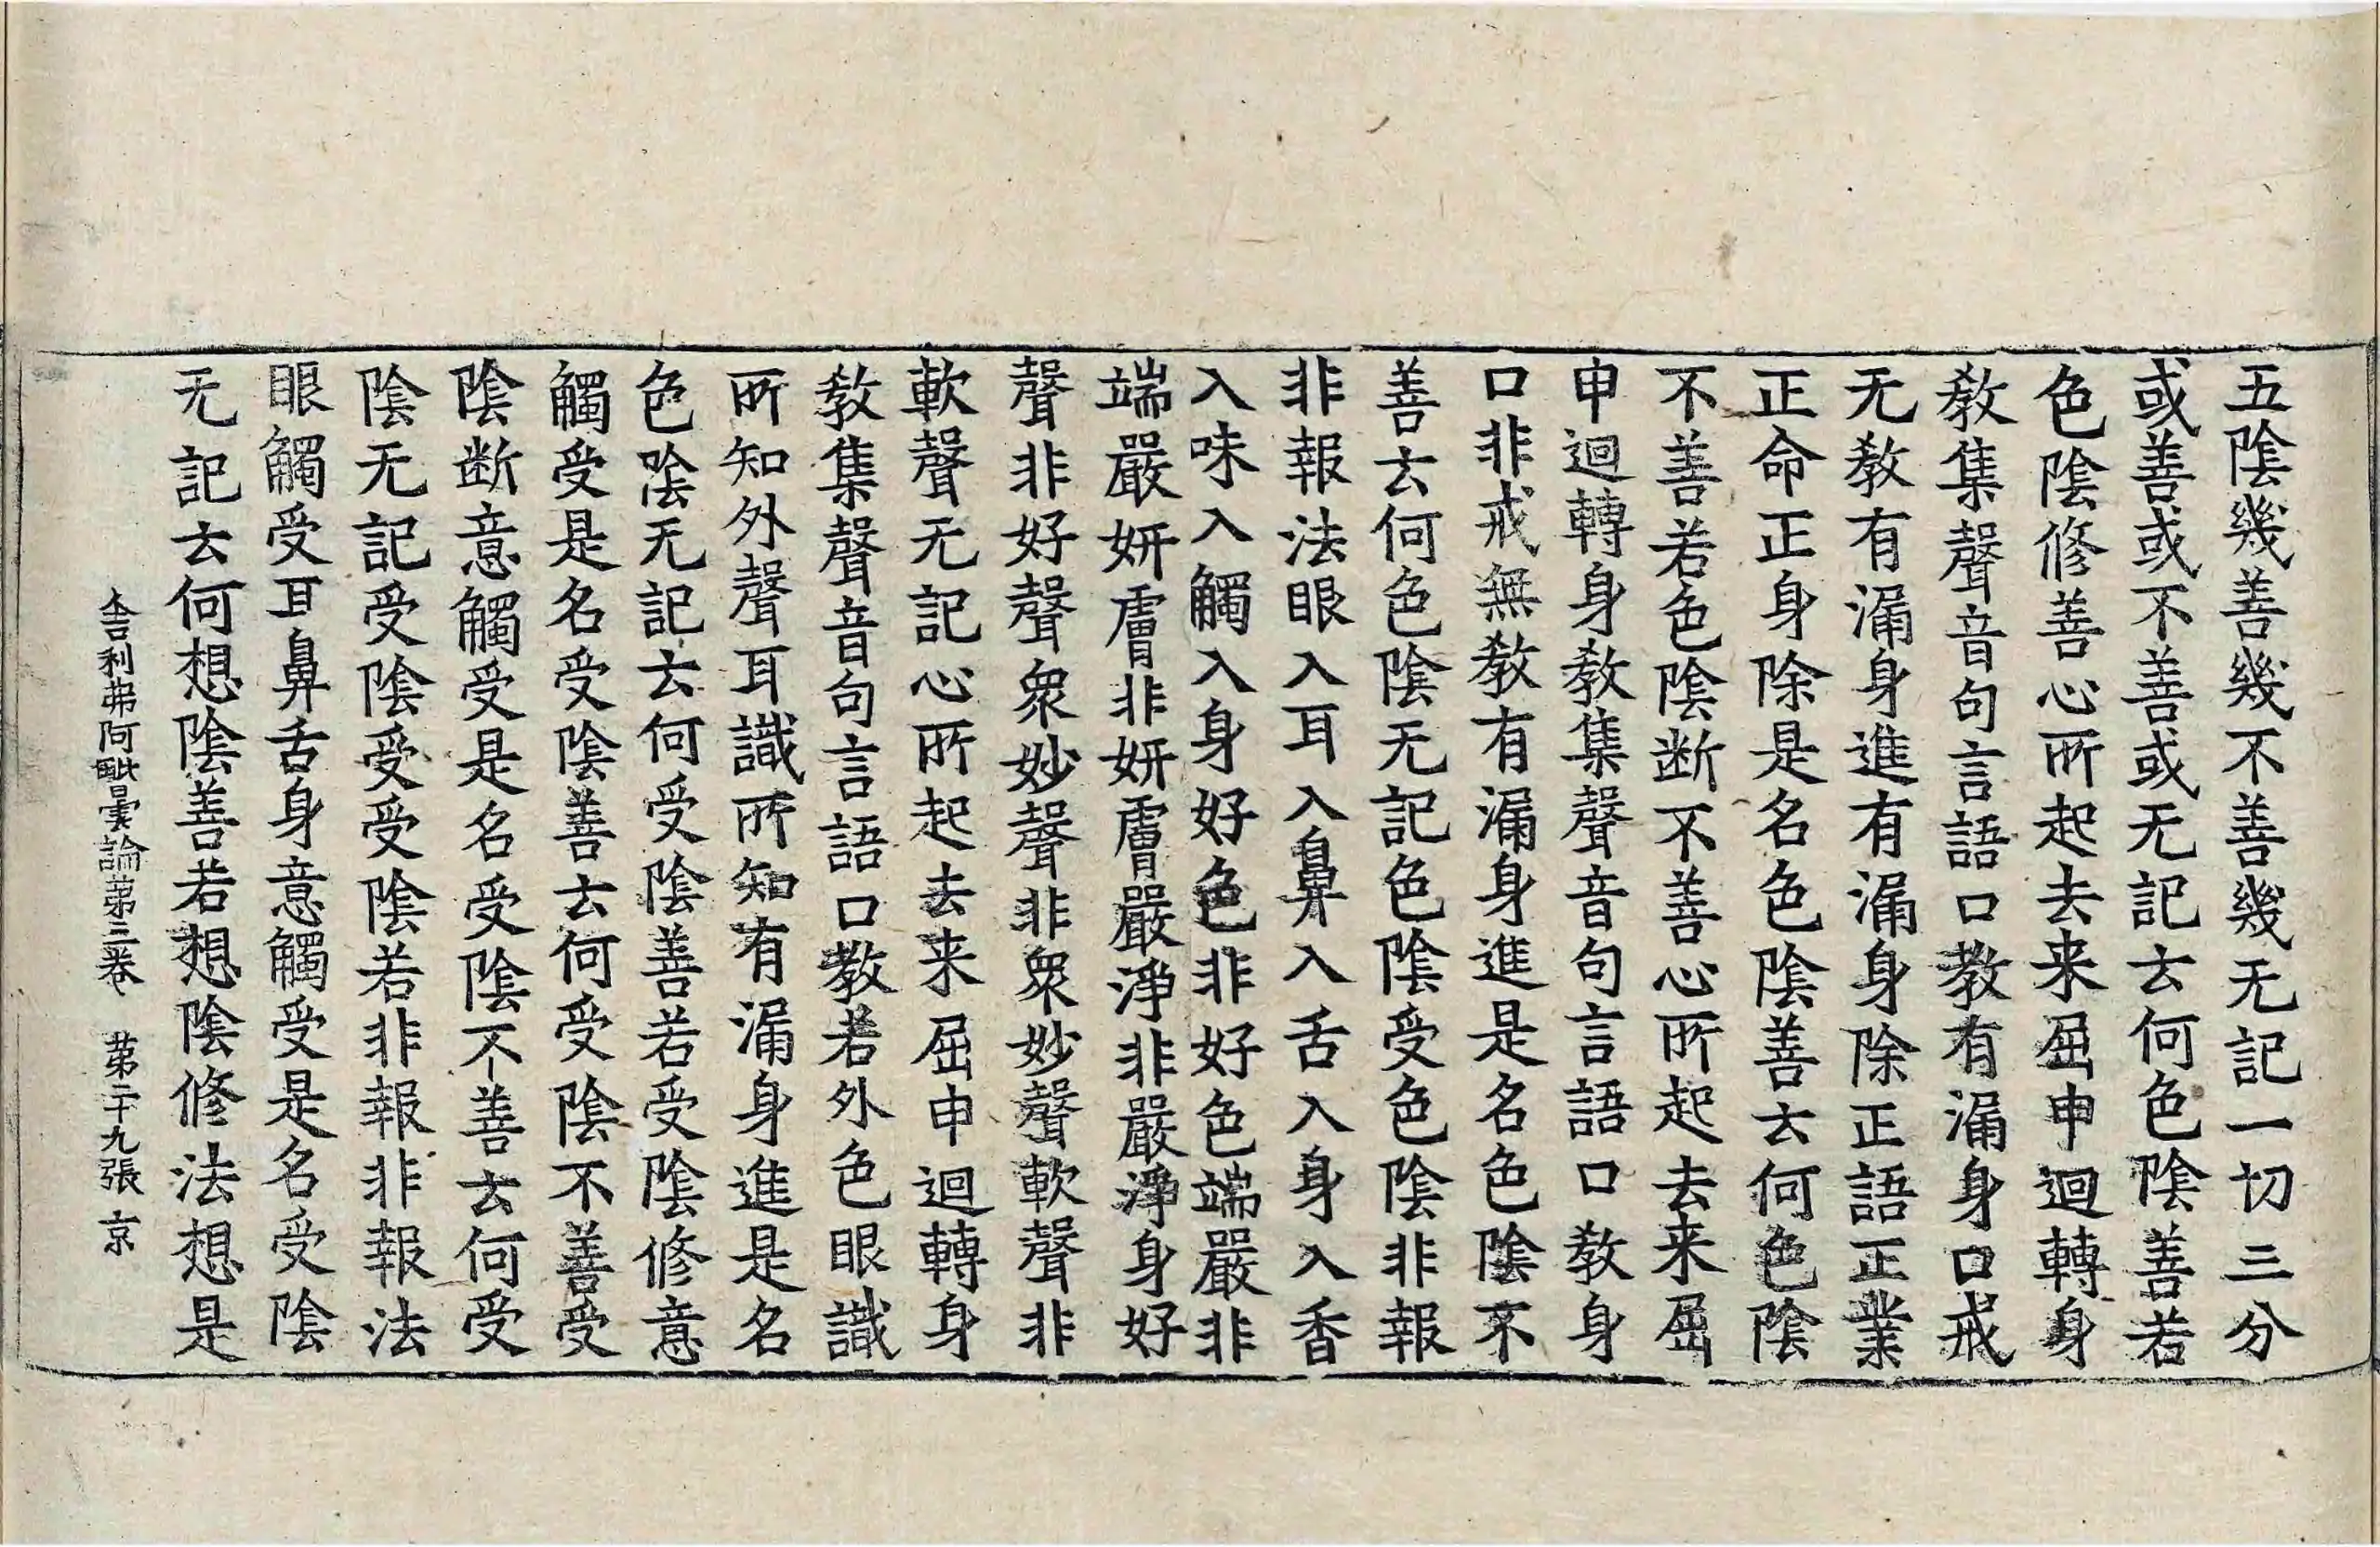 五陰幾善幾不善幾无記一切三分
或善或不善或无記去何色陰善若
色陰修善心所起去来屈申迴轉身
教集聲音句言語口教有漏身口戒
无教有漏身進有漏身除正語正業
正命正身除是名色陰善去何色陰
不善若色陰断不善心所起去来屈
申迴轉身教集聲音句言語口教身
口非戒無教有漏身進是名色陰不
善去何色陰无記色陰受色陰非報
非報法眼入耳入鼻入舌入身入香
入味入觸入身好色非好色端嚴非
端嚴妍膚非妍膚嚴淨非嚴淨身好
聲非好聲衆妙聲非衆妙聲軟聲非
軟聲无記心所起去来屈申迴轉身
教集聲音句言語口教若外色眼識
所知外聲耳識所知有漏身進是名
色陰无記去何受陰善若受陰修意
觸受是名受陰善去何受陰不善受
陰断意觸受是名受陰不善去何受
陰无記受陰受受陰若非報非報法
眼觸受耳鼻舌身意觸受是名受陰
无記去何想陰善若想陰修法想是
舍利弗阿毗曇論第三卷 第二十九張 京